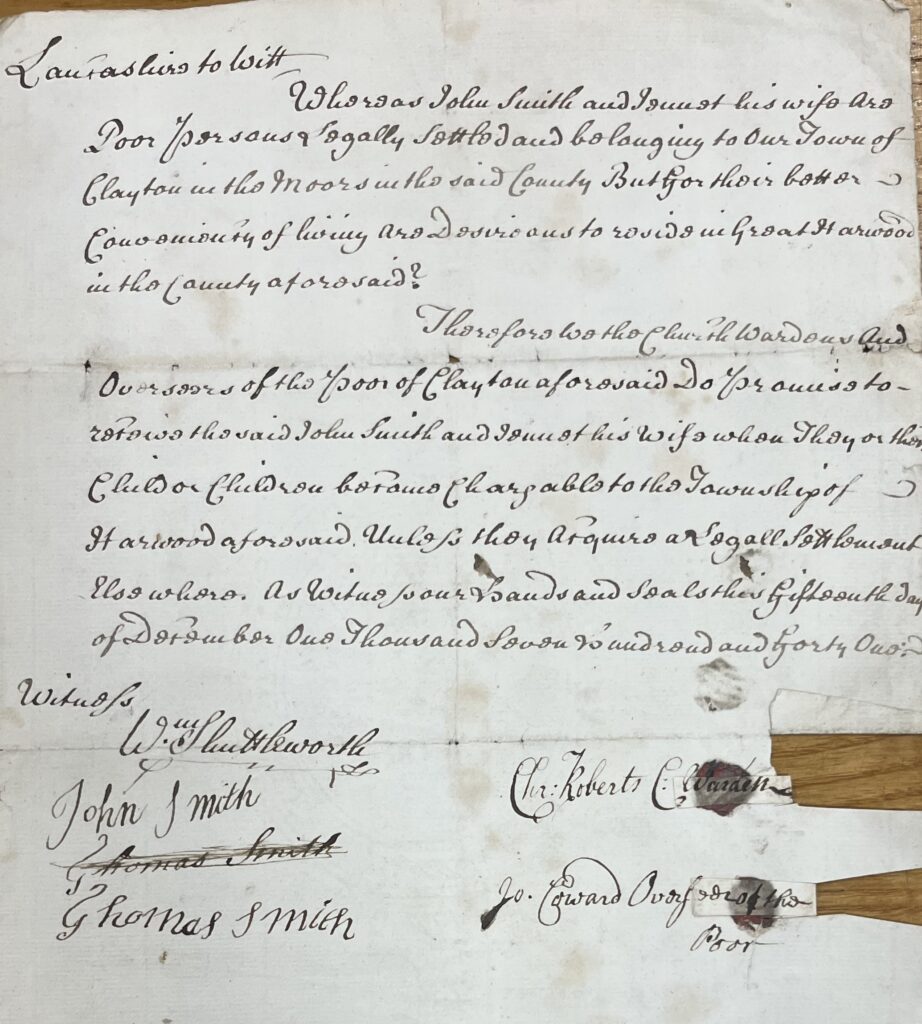 Lancashire to Witt
Whereas John Smith and Jennet his wife Are
Poor Persons Legally Settled and belonging to Our Town of
Clayton in the Moors in the said County But For their better
Conveniency of living Are Desireous to reside in Great Harwood
in the County aforesaid?
Therefore We the Church Wardens And
Overseers of the Poor of Clayton aforesaid Do Promise to
receive the said John Smith and Jennet his Wife when They or their
Child or Children become Chargable to the Township of
Harwood aforesaid. Unless they Acquire a Legall Settlement
Else where. As Witness our Hands and Seals this Fifteenth day
of December One Thousand Seven Hundrend and Forty One:
Witness
Wm Shuttleworth
John Smith
Thomas Smith
Thomas Smith
Chr: Roberts C: Warden
Jo. Coward Overseer of the
Poor